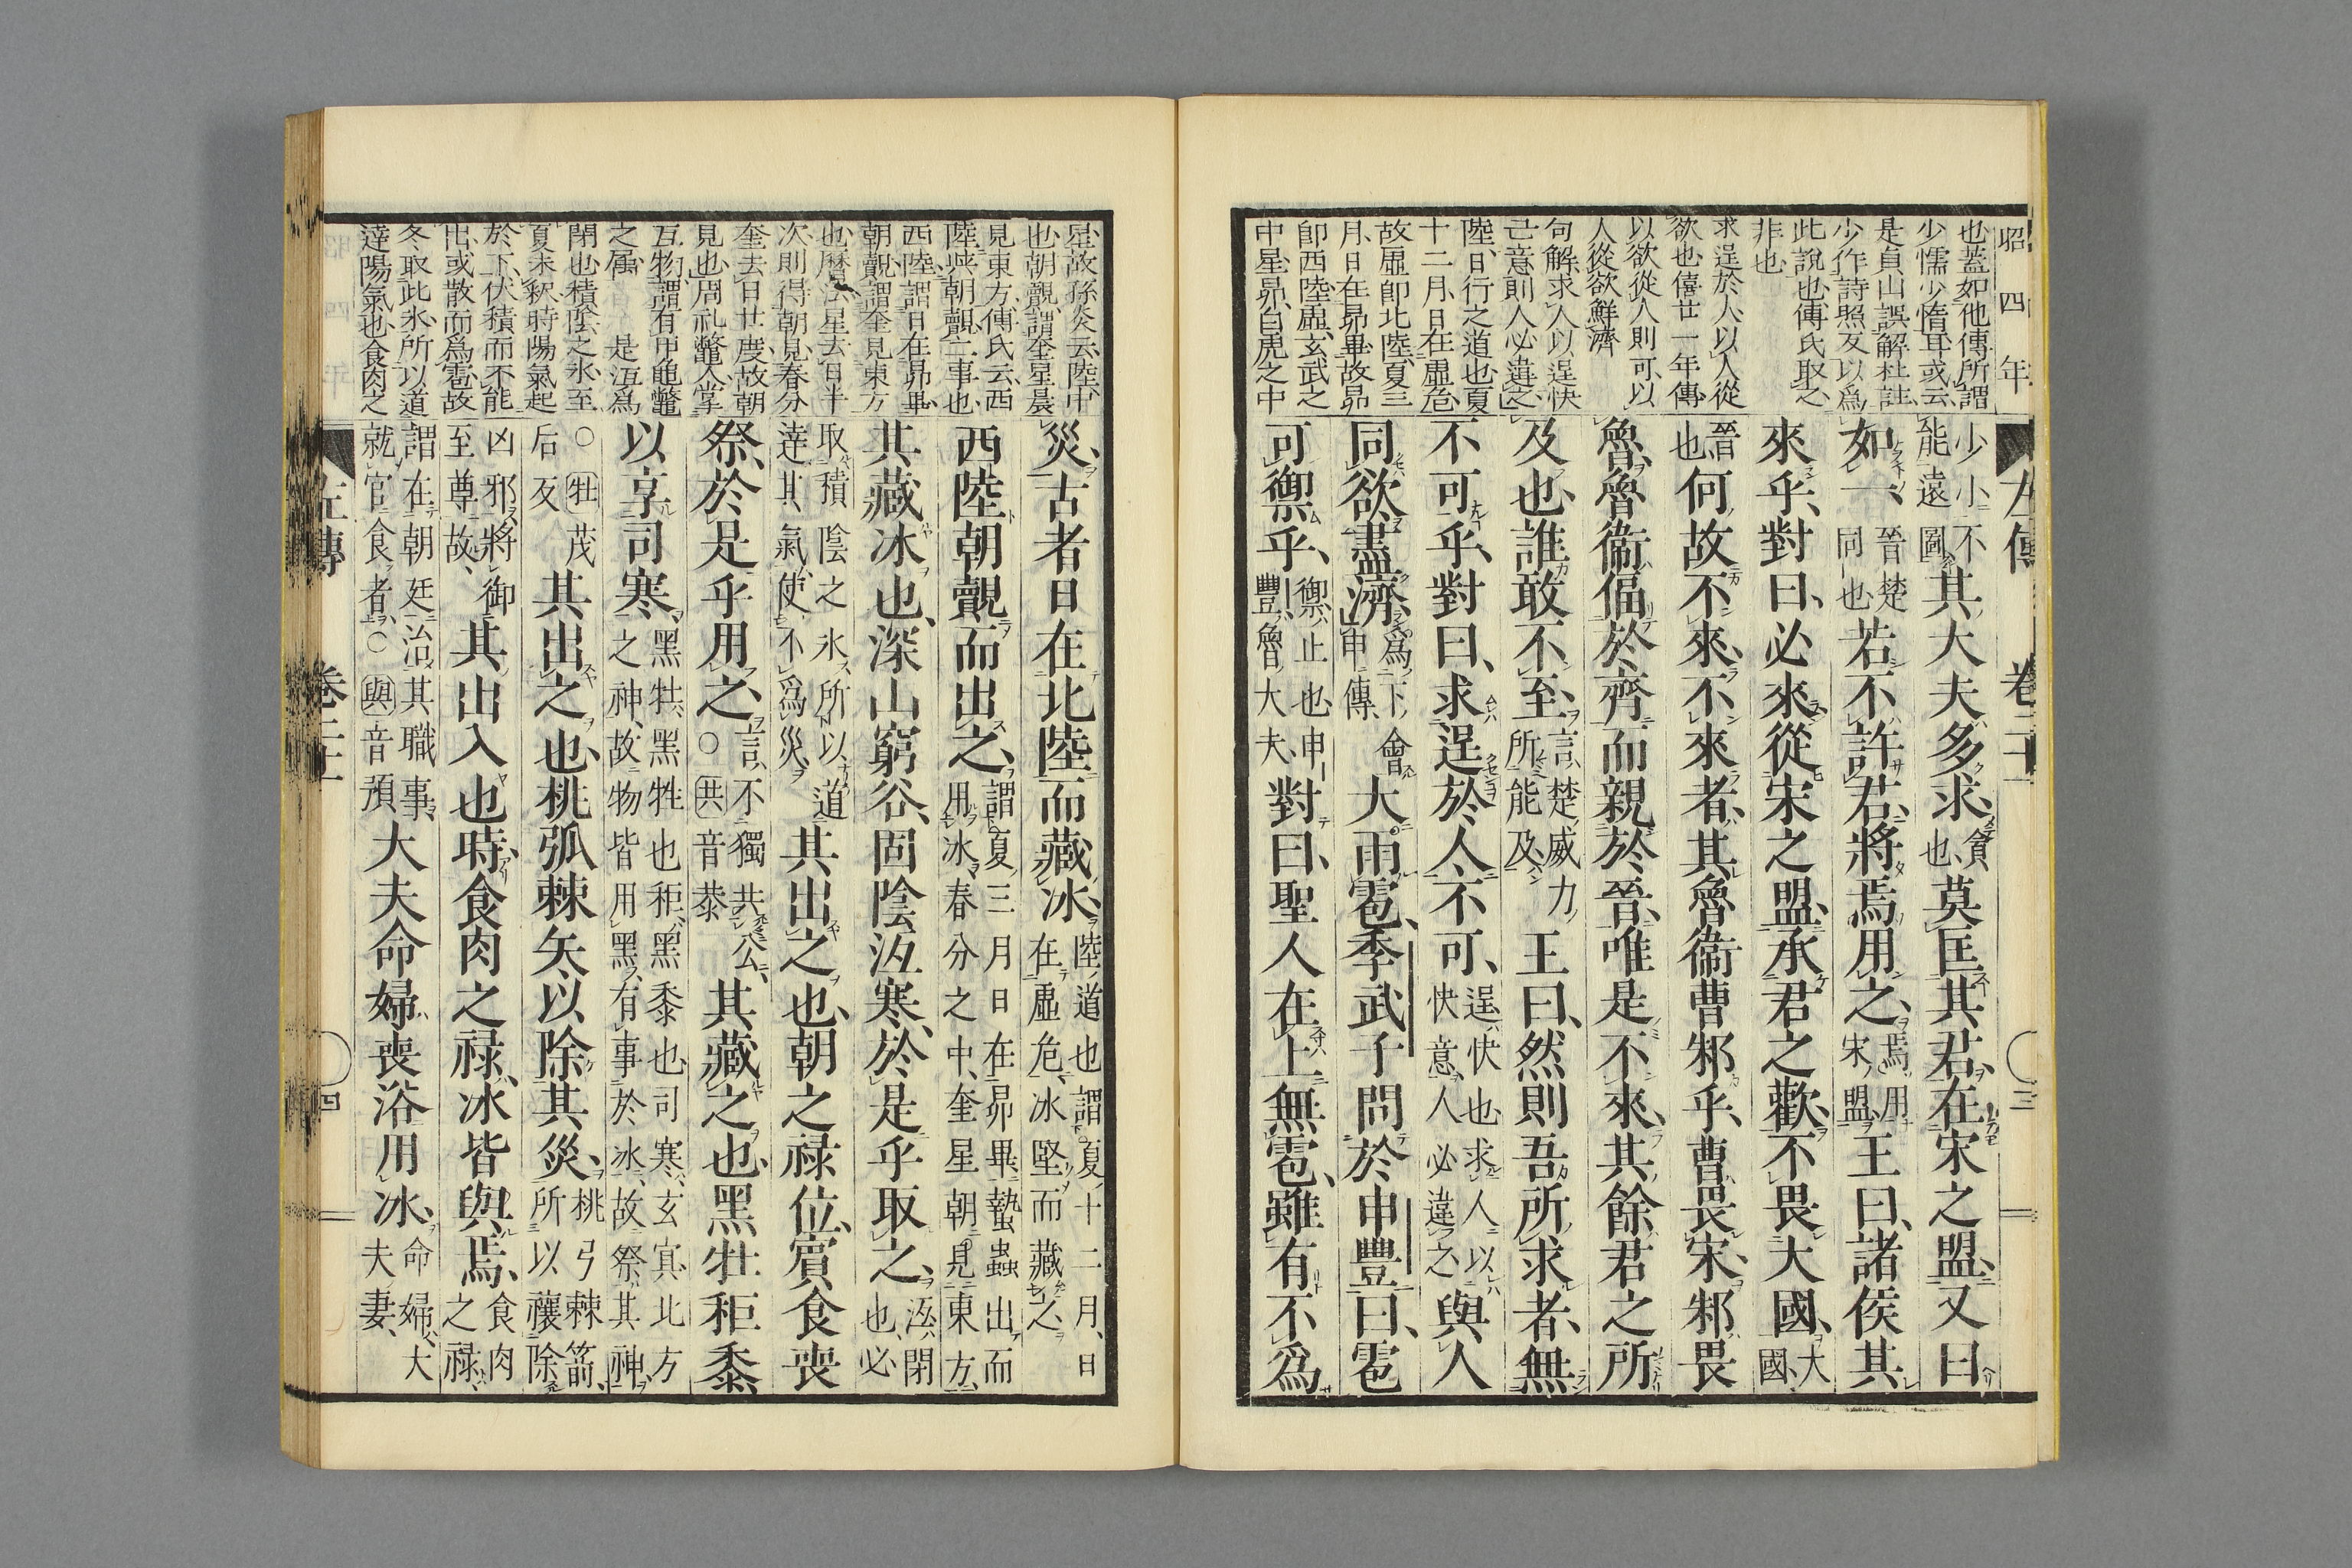 昭四年
也蓋如他傳所謂
少懦少惰耳或云
是貞山誤解杜註
少作詩照反以爲
此說也傳氏取之
非也
求逞於人以人從
欲也僖廿一年傳
以欲從人則可以
人從欲鮮濟
句解求人以逞快
己意則人必違之
陸日行之道也夏
十二月日在虛危
故虛卽北陸夏三
月日在昴畢故昴
卽西陸虛玄武之
中星昴白虎之中
左傳 卷二十一 三
少小不能遠圖其大夫多求貪也莫匡其君在宋之盟又曰
如一晉楚同也若不許君將焉用之焉用宋盟王曰諸侯其
來乎對曰必來從宋之盟承君之歡不畏大國大國
晉也何故不來不來者其魯衞曹邾乎曹畏宋邾畏
魯魯衞偪於齊而親於晉唯是不來其餘君之所
及也誰敢不至言楚威力所能及王曰然則吾所求者無
不可乎對曰求逞於人不可逞快也求人以快意人必違之與人
同欲盡濟爲下會申傳大雨雹季武子問於申豐曰雹
可禦乎禦止也申豐魯大夫對曰聖人在上無雹雖有不爲
星故孫炎云陸中
也朝覿謂奎星晨
見東方傳氏云西
陸與朝覿二事也
西陸謂日在昴畢
朝覿謂奎見東方
也曆法星去日半
次則得朝見春分
奎去日廿度故朝
見也周礼鼈人掌
互物謂有甲龜鼈
之屬 是冱爲
閉也積陰之氷至
夏未釈時陽氣起
於下伏積而不能
出或散而爲雹故
冬取此氷所以道
達陽氣也食肉之
災古者日在北陸而藏冰陸道也謂夏十二月日在虛危冰堅而藏之
西陸朝覿而出之謂夏三月日在昴畢蟄蟲出而用冰春分之中奎星朝見東方
其藏冰也深山窮谷固陰沍寒於是乎取之沍閉也必
取積陰之氷所以道達其氣使不爲災其出之也朝之祿位賓食喪
祭於是乎用之言不獨共公○共音恭其藏之也黑牡秬黍
以享司寒黑牡黑牲也秬黑黍也司寒玄冥北方之神故物皆用黑有事於冰故祭其神
○牡茂后反其出之也桃弧棘矢以除其災桃弓棘箭所以禳除
凶邪將御至尊故其出入也時食肉之祿冰皆與焉食肉之祿
謂在朝廷治其職事就官食者○與音預大夫命婦喪浴用冰命婦大夫妻
左傳 卷二十一 四